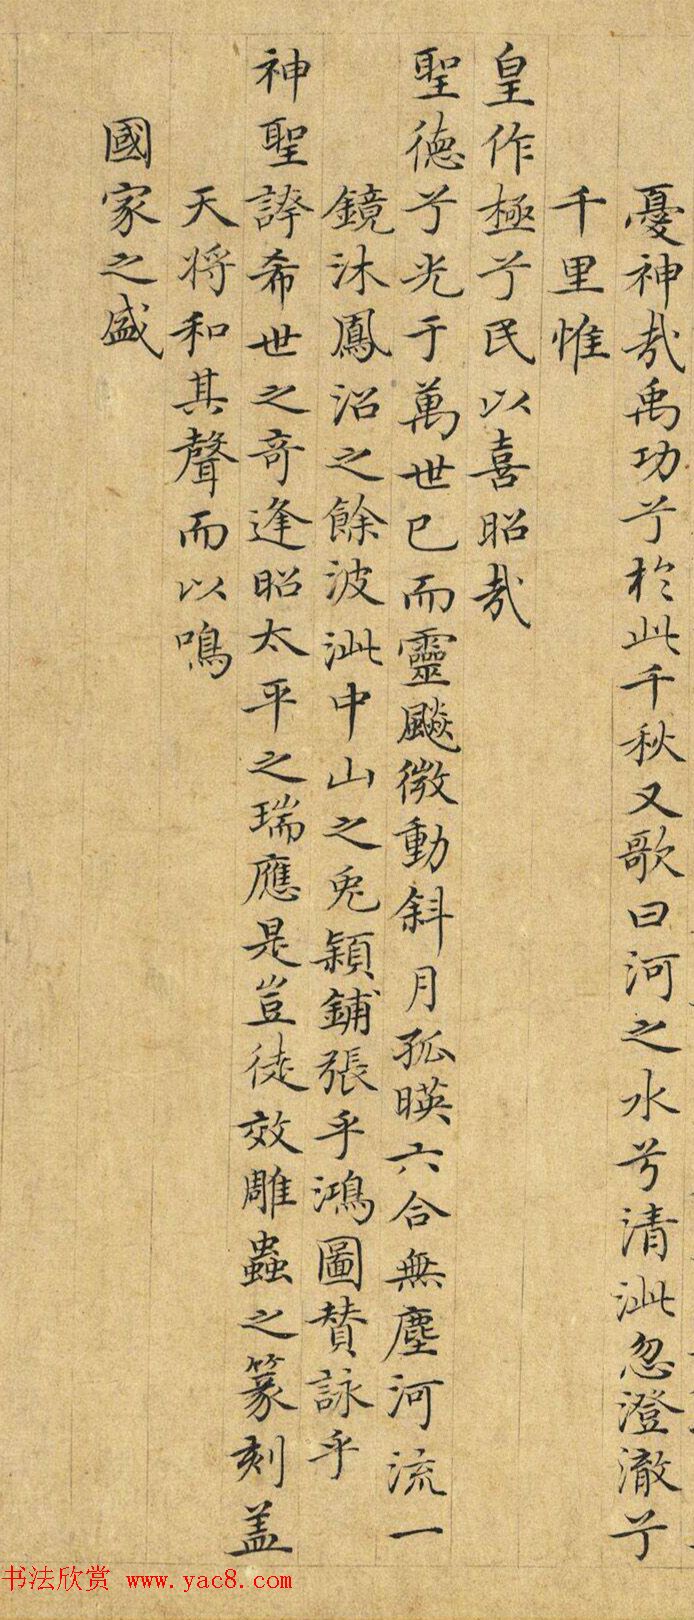 憂神哉禹功兮於此千秋又歌曰河之水兮清泚忽澄澈兮
千里惟
皇作極兮民以喜昭哉
聖德兮光于萬世已而靈飈微動斜月孤暎六合無塵河流一
鏡沐鳳沼之餘波泚中山之兎穎鋪張乎鴻圖賛詠乎
神聖誇希世之奇逢昭太平之瑞應是豈徒效雕蟲之篆刻盖
天将和其聲而以鳴
國家之盛
书法欣赏 www.yac8.com